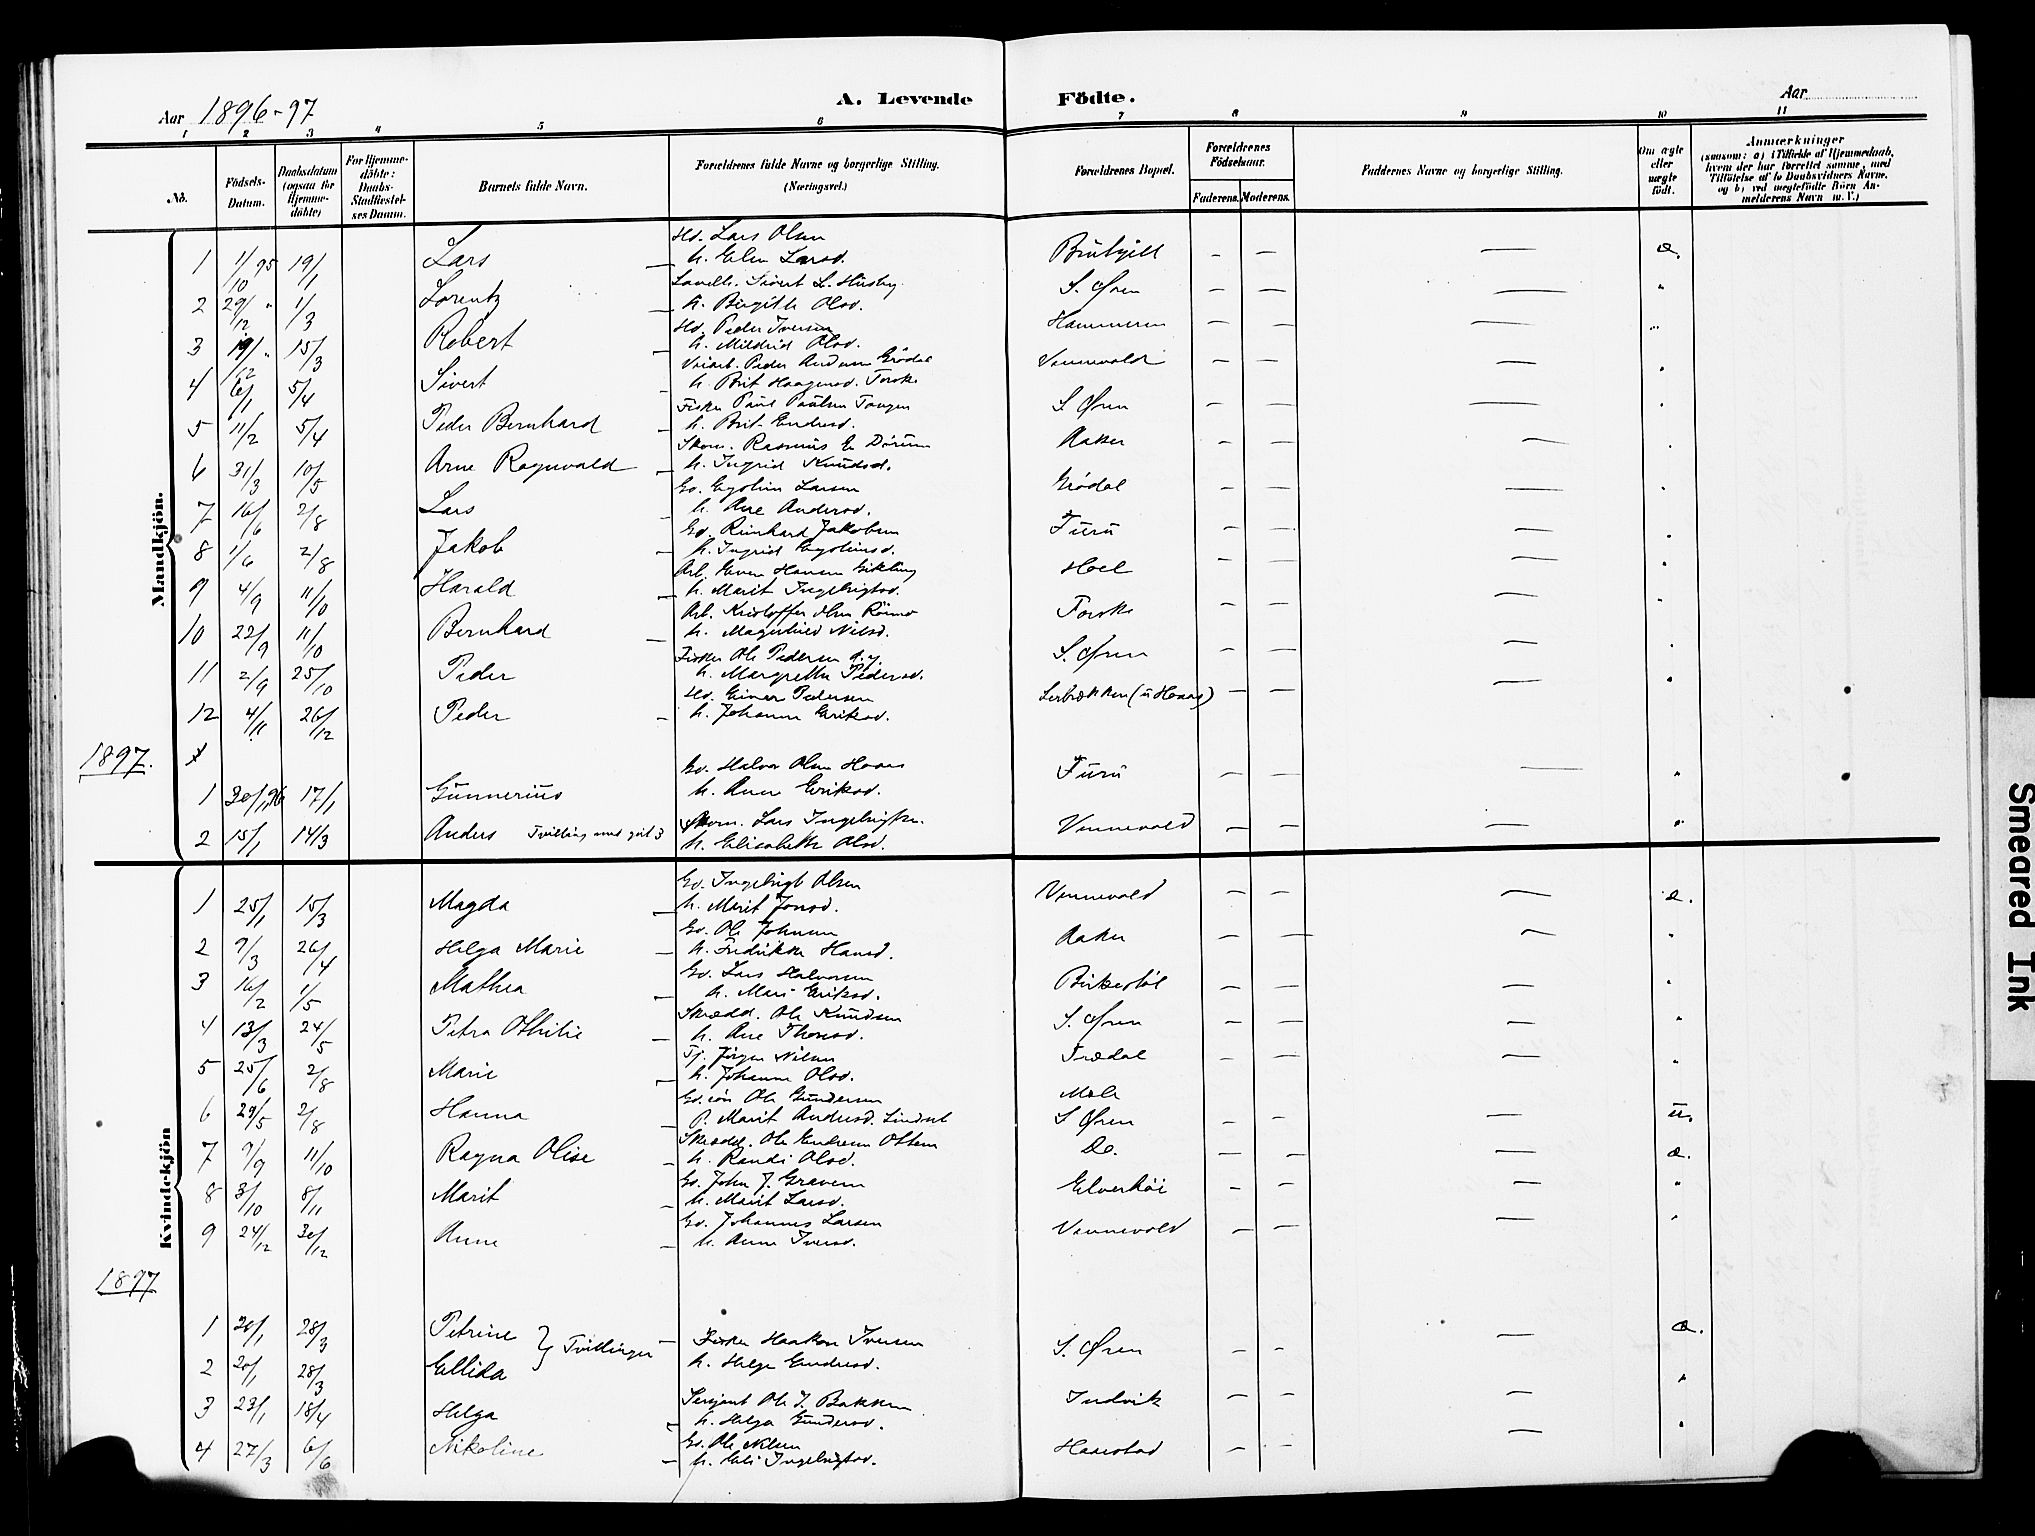 Aar 1896-97 A. Levende Födte. Aar
1 2 3 4 5 6 7 8 9 10 11
No. Födsels-Datum. Daabsdatum (ogsaa for Hjemme-döbte) For Hjemme-döbte: Daabs-Stadfæstelses Datum. Barnets fulde Navn. Forældrenes fulde Navne og borgerlige Stilling. (Næringsvei.) Forældrenes Bopæl. Forældrenes Födselsaar. Faderens. Moderens. Faddernes Navne og borgerlige Stilling. Om ægte eller uægte födt. Anmærkninger (saasom: a) i Tilfælde af Hjemmedaab, hvem der har forrettet samme, med Tilföielse af to Daabsvidners Navne, og b) ved uægtefödte Börn Anmelderens Navn m. V.)
Mandkjön.
Hd. Lars Olsen
1 1/10 95 19/1 Lars — h. Elen Larsd. — — — æ.
Sivert L. Husby
2 29/12 " 1/3 Lorentz — h. Birgitte Olsd. S. Øren — — — "
Hd. Peder Iversen
3 19/12 " 15/3 Robert — h. Mildrid Olsd. Hammeren — — — "
Peder Grödal
4 6/1 5/4 Sivert — h. Brit Haagensd. Torske Vennevold — — — "
Fisker Paul Paulsen Tangen
5 11/2 5/4 Peder Bernhard — h. Brit Endresd. S. Øren — — — "
Skom. Rasmus E. Dörum
6 31/3 10/5 Arne Ragnvald — h. Ingrid Knudsd. Aaker — — — "
Gd. Larsen
7 16/6 2/8 Lars — h. Ane Andersd. Grödal — — — "
Gd. Reinhard Jakobsen
8 1/6 2/8 Jakob — h. Ingrid Furu — — — "
Arb. Even Hansen Gikling
9 4/9 11/0 Harald — h. Marit Ingebrigtsd. Hoel — — — "
Arb. Kristoffer Olsen
10 22/9 11/10 Bernhard — h. Magnhild Nilsd. Torske — — — "
Fisker Ole Pedersen
11 2/9 25/10 Peder h. Margrethe Pedersd. S. Øren — — — "
Hd. Einar Pedersen
12 4/11 26/12 Peder — h. Johanne Eriksd. Lerbrækken (u Hoaas) — — — "
1897.
Gd. Halvor Olsen Hoaas
1 30/11 96 17/1 Gunnerius h. Ane Eriksd. Furu — — — "
Skom. Lars Ingebrigtsen
2 15/1 14/3 Anders Tvilling med h. Elisabeth Olsd. Vennevold — — — "
Kvindekjön
Gd. Ingebrigt Olsen
1 25/1 15/3 Magda — h. Marit Jonsd. Vennevold — — — æ.
Gd. Ole Johnsen
2 9/3 26/4 Helga Marie — h. Fredrikke Hansd. Aaker — — — "
Gd. Lars Halvorsen
3 16/2 1/5 Mathea — h. Mari Eriksd. Birkestöl — — — "
Skrædd. Ole Knudsen
4 13/3 24/5 Petra Othilie — h. Ane Thorsd. S. Øren — — — "
Tj. Jörgen Nilsen
5 25/6 2/8 Marie — h. Johanne Olsd. Trædal — — — "
Gd.sön Ole Gundersen Mele
6 29/5 2/8 Hanna — P. Marit Andersd. Lindset S Øren — — — u.
Skrædd. Ole Endresen Ottem
7 9/9 11/10 Ragna Olise — h. Randi Olsd. Do. — — — æ.
Gd. John J. Gravem
8 3/10 8/11 Marit — h. Marit Larsd. Elverhöi — — — "
Gd. Johannes Larsen
9 24/12 30/12 Anne — h. Anne Iversd. Vennevold — — — "
1897
1 20/1 28/3 Petrine } Tvillinger — Fisker Haakon Iversen S. Øren — — — æ.
2 20/1 28/3 Ellida h. Helga Endresd. "
Sersjant Ole J. Bakken
3 23/1 18/4 Helga — h. Helga Gundersd. Indvik — — — "
Gd. Ole Nilsen
4 27/3 6/6 Nikoline — h. Eli Ingebrigtsd. Haarstad — — —
Smeared Ink